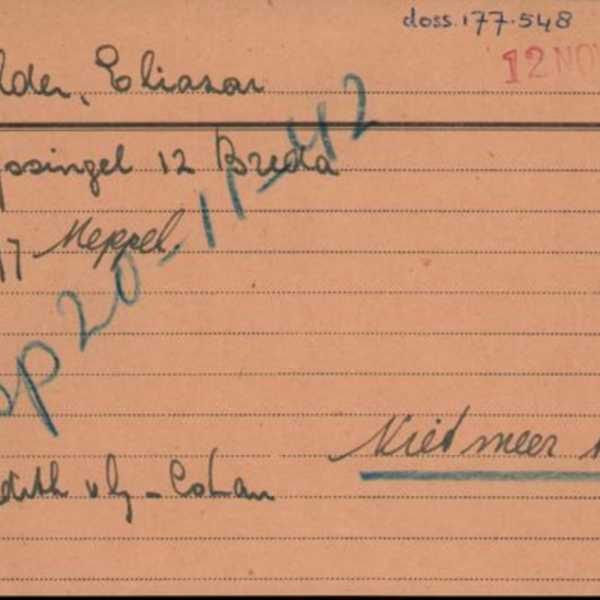 doss. 177.548
12 NO
lder, Eliazar
ssingel 12 Breda
17 Meppel.
op 20-11-42
Niet meer
dith v/g - Cohan